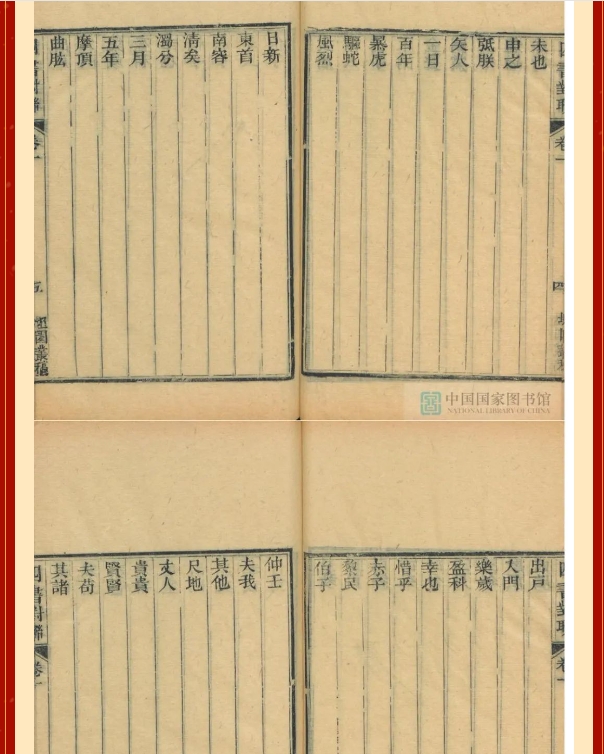 四書對聯
卷一
四
未也
申之
弤朕
矢人
一日
百年
暴虎
驅蛇
風烈
日新
東首
南容
清矣
濁分
三月
五年
摩頂
曲肱
四書對聯
卷一
五
中国国家图书馆
NATIONAL LIBRARY OF CHINA
四書對聯
卷一
出戶
入門
樂歲
盈科
幸也
惜乎
赤子
黎民
伯子
仲壬
夫我
其他
尺地
丈人
貴貴
賢賢
夫苟
其諸
四書對聯
卷一